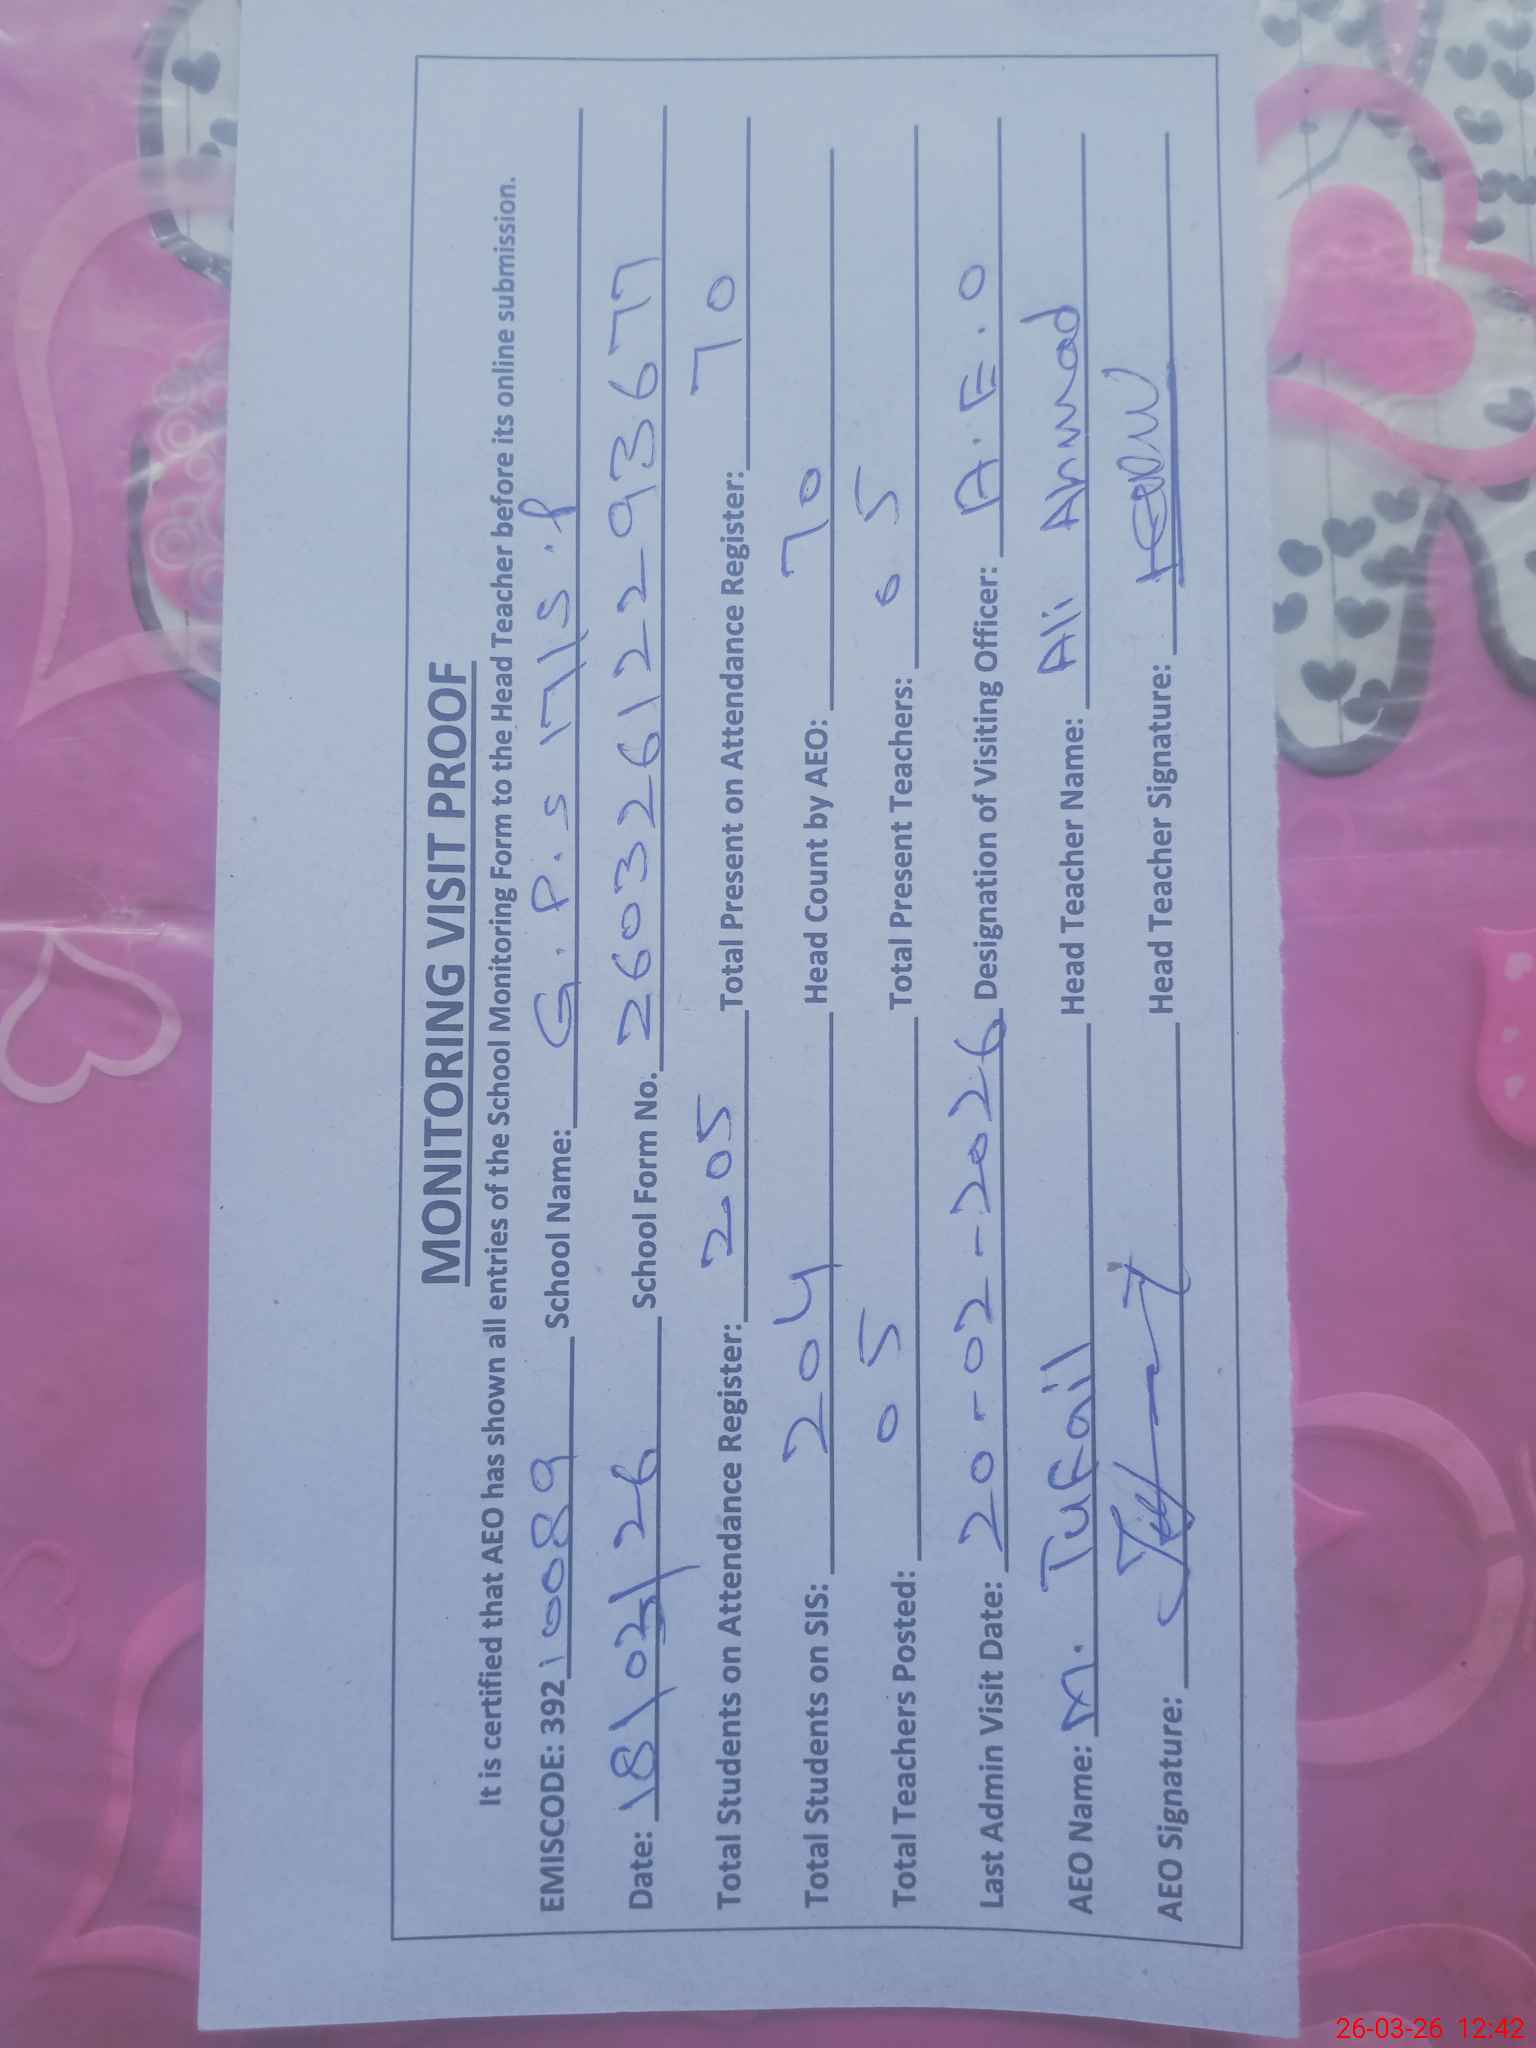 MONITORING VISIT PROOF
It is certified that AEO has shown all entries of the School Monitoring Form to the Head Teacher before its online submission.
EMISCODE: 39210089 School Name: G.P.S 171S.P
Date: 18/02/26 School Form No. 2603261229367​7
Total Students on Attendance Register: 205 Total Present on Attendance Register: 70
Total Students on SIS: 204 Head Count by AEO: 70
Total Teachers Posted: 05 Total Present Teachers: 05
Last Admin Visit Date: 20-02-2026 Designation of Visiting Officer: A.E.O
AEO Name: M. Tufail Head Teacher Name: Ali Ahmad
AEO Signature: Head Teacher Signature:
26-03-26 12:42